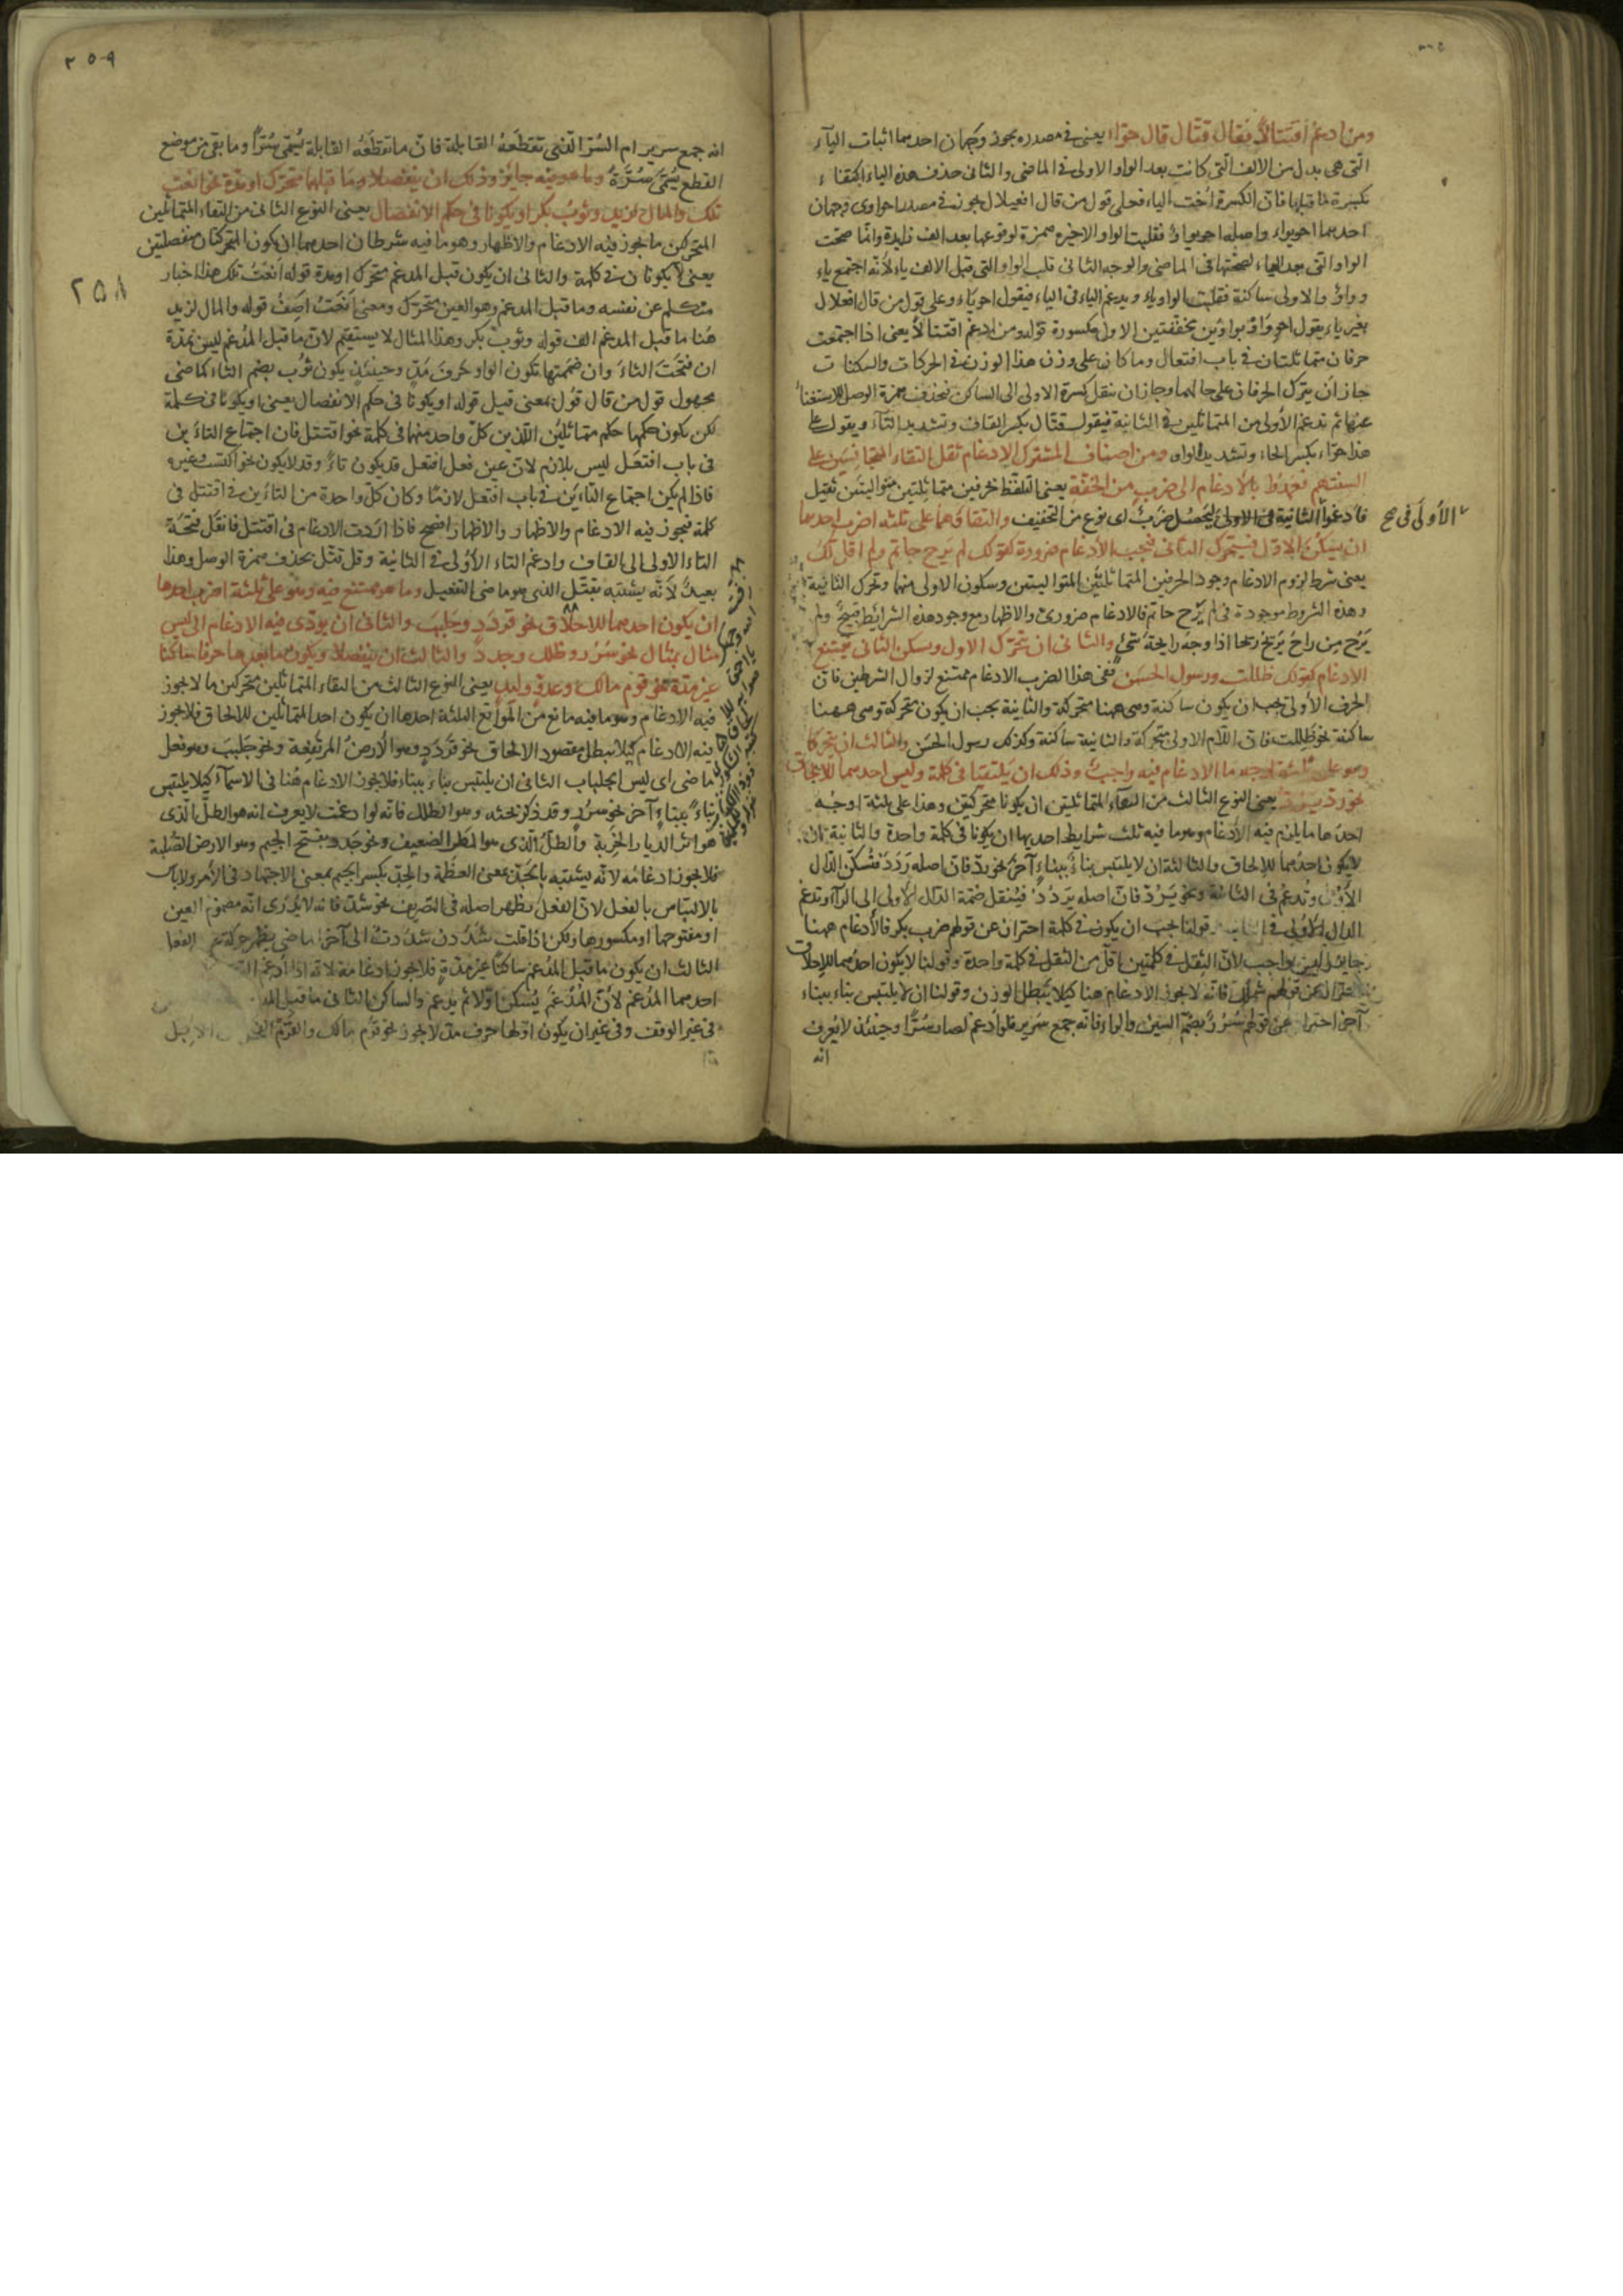 ومن ادغم اقتتالًا فقال قتّال قال حوّاء يعنى فى مصدره يجوز وجهان احدهما اثبات الياء
التى هى بدل من الالف التى كانت بعد الواو الاولى فى الماضى والثانى حذف هذه الياء اكتفاء
بكسرة ما قبلها فان الكسرة اخت الياء فعلى قول من قال افعيلال يجوز فى مصدر احواوى وجهان
احدهما احويواء واصله احويواو فقلبت الواو الاخيره همزة لوقوعها بعد الف زايدة وانما صحت
الواو التى بعد الياء لصحتها فى الماضى والوجه الثانى قلب الواو التى قبل الالف ياء لانه اجتمع ياء
وواو والاولى ساكنة فقلبت الواو ياء ويدغم الياء فى الياء فيقول احوياء وعلى قول من قال افعلال
بغير ياء يقول احوواء بواوين مخففتين الاولى مكسورة قوله ومن ادغم اقتتالا يعنى اذا اجتمعت
حرفان متماثلتان فى باب افتعال وما كان على وزن هذا الوزن فى الحركات والسكنات
جاز ان يترك الحرفان على حالهما وجاز ان ينقل كسرة الاولى الى الساكن فيحذف همزة الوصل للاستغناء
عنها ثم تدغم الاولى من المتماثلين فى الثانية فيقول قتّال بكسر القاف وتشديد التاء ويقول على
هذا حوّاء بكسر الحاء وتشديد الواو ومن اصناف المشترك الادغام ثقل التقاء المتجانسين على
السنتهم فعمدوا بالادغام الى ضرب من الخفة يعنى التلفظ بحرفين متماثلتين متواليتين ثقيل
فادغموا الثانية فى الاولى ليحصل ضرب اى نوع من التخفيف والتقاؤهما على ثلثه اضرب احدهما
الأولى فى صح
ان يسكن الاول فيتحرك الثانى فيجب الادغام ضرورة كقولك لم يرح حاتم ولم اقل لك
يعنى شرط لزوم الادغام وجود الحرفين المتماثلين المتواليتين وسكون الاولى منهما وتحرك الثانية
وهذه الشروط موجودة فى لم يرح حاتم فالادغام ضرورى والاظهار مع وجود هذه الشرائط قبيح ولم
يرح من راح يريح ريحا اذا وجد رايحة شىء والثانى ان يتحرك الاول ويسكن الثانى فيمتنع
الادغام كقولك ظللت ورسول الحسن ففى هذا الضرب الادغام ممتنع لزوال الشرطين فان
الحرف الأولى يجب ان يكون ساكنة وهى ههنا متحركة والثانية يجب ان يكون متحركة وهى ههنا
ساكنة نحو ظللت فان اللام الاولى متحركة والثانية ساكنة وكذلك رسول الحسن والثالث ان يتحركا
وهو على ثلثة اوجه ما الادغام فيه واجب وذلك ان يلتقيا فى كلمة وليس احدهما للالحاق
نحو ردّ يردّ يعنى النوع الثالث من التقاء المتماثلين ان يكونا متحركتين وهذا على ثلثة اوجه
احدها ما يلزم فيه الادغام وهو ما فيه ثلث شرايط احديها ان يكونا فى كلمة واحدة والثانية ان
لا يكون احدهما للالحاق والثالثة ان لا يلتبس بناء ببناء آخر نحو ردّ فان اصله ردد فتسكن الدال
الأولى وتدغم فى الثانية ونحو يردّ فان اصله يردد فينقل ضمة الدال الاولى الى الراء وتدغم
الدال الاولى فى قولنا يجب ان يكون فى كلمة احتراز عن قولهم ضرب بكر فالادغام ههنا
جايز ليس بواجب لان الثقل فى كلمتين اقل من الثقل فى كلمة واحدة وقولنا لا يكون احدهما للالحاق
عن قولهم شملل فانه لا يجوز الادغام هنا كيلا يبطل الوزن وقولنا ان لا يلتبس بناء ببناء
آخر احتراز عن قولهم سرر بضم السين والراء فانه جمع سرير فلو ادغم لصار سرّا وحينئذ لا يعرف
انه
٢٥٩
٢٥٨
انه جمع سرير ام السرّ الذى تقطعه القابلة فان ما تقطعه القابلة يسمى سرّا وما بقى من موضع
القطع يسمى سرّة وما هو فيه جايز وذلك ان ينفصلا وما قبلهما متحرك او مدة نحو انعت
تلك والمال لزيد وثوب بكر او يكونا فى حكم الانفصال يعنى النوع الثانى من التقاء المتماثلين
المتحركين ما يجوز فيه الادغام والاظهار وهو ما فيه شرطان احدهما ان يكون المتحركتان منفصلتين
يعنى لا يكونان فى كلمة والثانى ان يكون قبل المدغم متحرك او مدة قوله انعت تلك هذا اخبار
متكلم عن نفسه وما قبل المدغم وهو العين متحرك ومعنى انعت اصف قوله والمال لزيد
هنا ما قبل المدغم الف قوله وثوب بكر وهذا المثال لا يستقيم لان ما قبل المدغم ليس بمدة
ان فتحت الثاء وان ضممتها تكون الواو حرف مدّ وحينئذ يكون ثوب بضم الثاء كماضى
مجهول قول من قال قول بمعنى قيل قوله او يكونا فى حكم الانفصال يعنى او يكونا فى كلمة
لكن يكون حكمها حكم متماثلين اللذين كل واحد منهما فى كلمة نحو اقتتل فان اجتماع التاءين
فى باب افتعل ليس بلازم لان عين فعل افتعل قد يكون تاء وقد لا يكون نحو اكتسب وغيره
فاذا لم يكن اجتماع التاءين فى باب افتعل لازما وكان كل واحدة من التاءين فى اقتتل فى
كلمة فيجوز فيه الادغام والاظهار والاظهار افصح فاذا اردت الادغام فى اقتتل فانقل فتحة
التاء الاولى الى القاف وادغم التاء الأولى فى الثانية وقل قتّل بحذف همزة الوصل وهذا
بعيد لانه يشتبه بقتّل الذى هو ماضى التفعيل وما هو ممتنع فيه وهو على ثلثة اضرب احدها
ان يكون احدهما للالحاق نحو قردد وجلبب والثانى ان يودى فيه الادغام الى لبس
مثال بمثال نحو سرر وظلل وجدد والثالث ان ينفصلا ويكون ما قبلها حرفا ساكنا
غير مدة نحو قوم مالك وعدو وليد يعنى النوع الثالث من التقاء المتماثلين متحركين ما لا يجوز
فيه الادغام وهو ما فيه مانع من الموانع الثلثة احدها ان يكون احد المتماثلين للالحاق فلا يجوز
فيه الادغام كيلا يبطل مقصود الالحاق نحو قردد وهو الأرض المرتفعة ونحو جلبب وهو فعل
ماضى اى لبس الجلباب الثانى ان يلتبس بناء ببناء فلا يجوز الادغام هنا فى الاسماء كيلا يلتبس
بناء ببناء آخر نحو سرر وقد ذكر بحثه وهو الطلل فانه لو ادغمت لا يعرف انه هو الطلل الذى
هو اثر الديار الخربة والطلّ الذى هو المطر الضعيف ونحو جدد بفتح الجيم وهو الارض الصلبة
فلا يجوز ادغامه لانه يشتبه بالجدّ بمعنى العظمة والجدّ بكسر الجيم بمعنى الاجتهاد فى الأمر ولا باس
بالالتباس بالفعل لان الفعل يظهر اصله فى التصريف نحو شدّ فانه لا يدرى انه مضموم العين
او مفتوحها او مكسورها ولكن اذا قلت شددن شددت الى آخر ماضى يظهر حركة عين الفعل
الثالث ان يكون ما قبل المدغم ساكنا غير مدة فلا يجوز ادغامه لانه اذا ادغم
احدهما المدغم لأن المدغم يسكن اولا ثم يدغم والساكن الثانى ما قبل المد
فى غير الوقف وفى غير ان يكون اولها حرف مدّ لا يجوز نحو قوم مالك والقرم